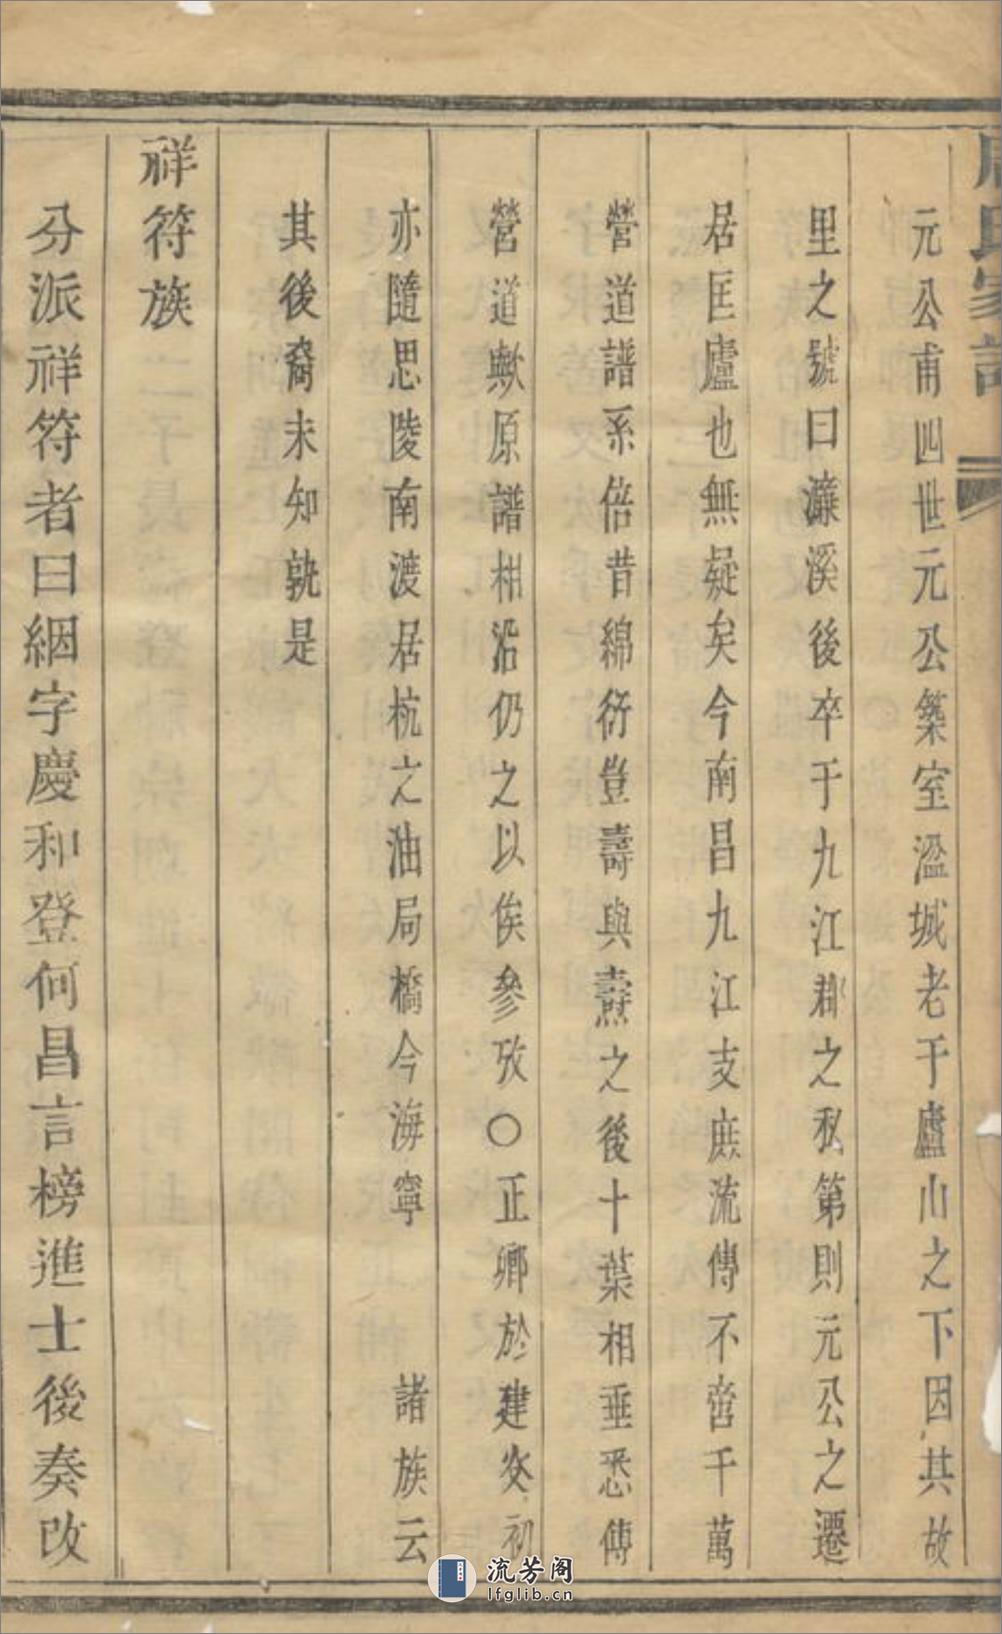 周氏家譜
元公甫四世元公築室湓城老于廬山之下因其故
里之號曰濂溪後卒于九江郡之私第則元公之遷
居匡廬也無疑矣今南昌九江支庶流傳不啻千萬
營道譜系倍昔綿衍豈壽與燾之後十葉相垂悉傳
營道歟原譜相沿仍之以俟參攷〇正卿於建炎初
亦隨思陵南渡居杭之油局橋今海寧 諸族云
其後裔未知孰是
祥符族
分派祥符者曰絪字慶和登何昌言榜進士後奏改
流芳阁
lfglib.cn